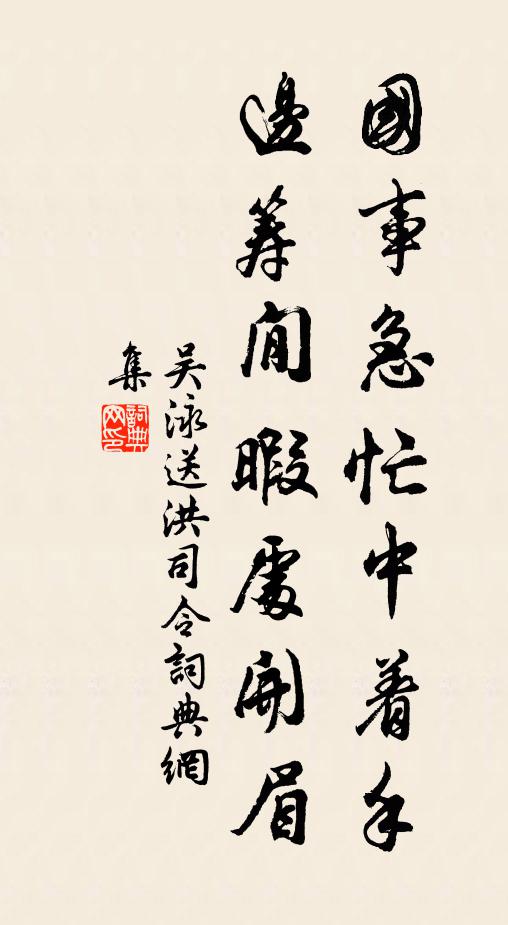 國事急忙中着手
邊筹閒暇處開眉
吴泳送洪司令詞典網
集
詞典网印